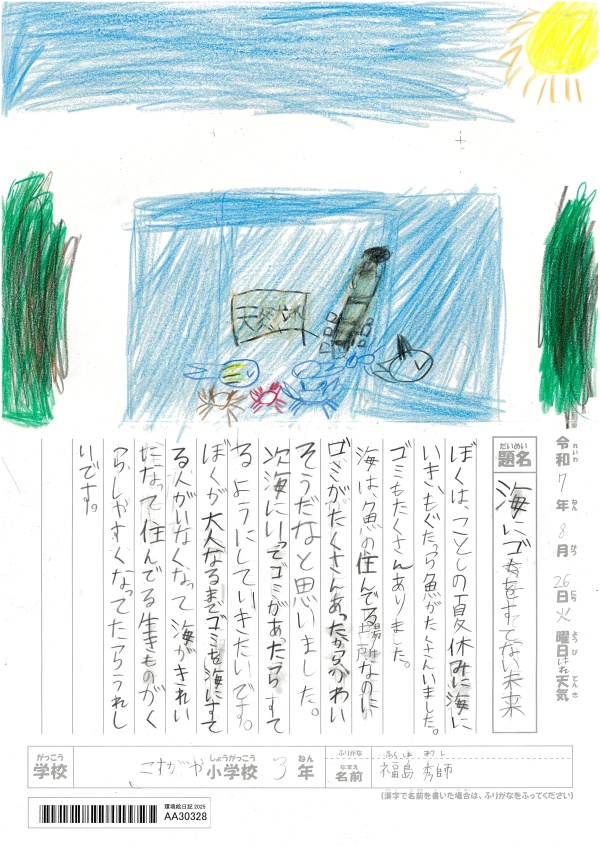 天然水
令和7年8月26日火曜日 天気はれ
れいわ ねん がつ にち ようび てんき
だいめい
題名
海にゴミをすてない未来
ぼくは、ことしの夏休みに海に
いき、もぐたら魚がたくさんいました。
ゴミもたくさんありました。
海は、魚の住んでる場所なのに
ゴミがたくさんあったからかわい
そうだなと思いました。
次海にいってゴミがあったらすて
るようにしていきたいです。
ぼくが大人なるまでゴミを海にすて
る人がいなくなって海がきれい
になって住んでる生きものがく
らしやすくなってたらうれし
いです。
がっこう
学校
こすがや小学校 3年
しょうがっこう ねん
ふりがな
なまえ
名前
福島 秀師
(漢字で名前を書いた場合は、ふりがなをふってください)
環境絵日記 2025
AA30328